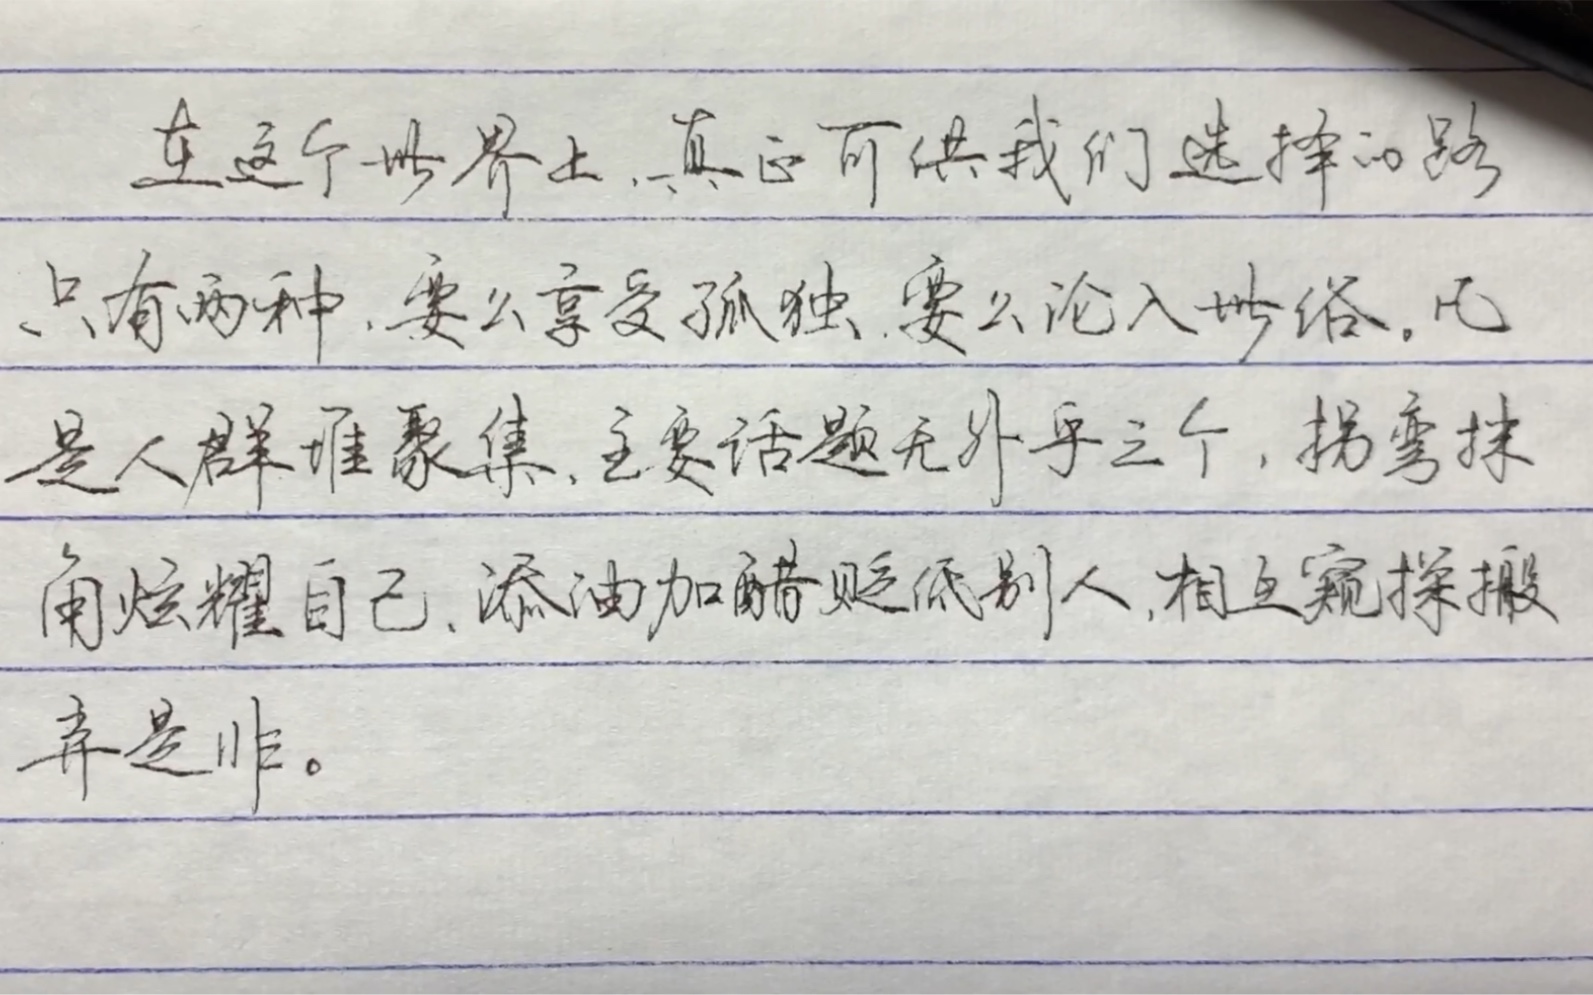 在这个世界上，真正可供我们选择的路
只有两种，要么享受孤独，要么沦入世俗。凡
是人群堆聚集，主要话题无外乎三个，拐弯抹
角炫耀自己，添油加醋贬低别人，相互窥探搬
弄是非。